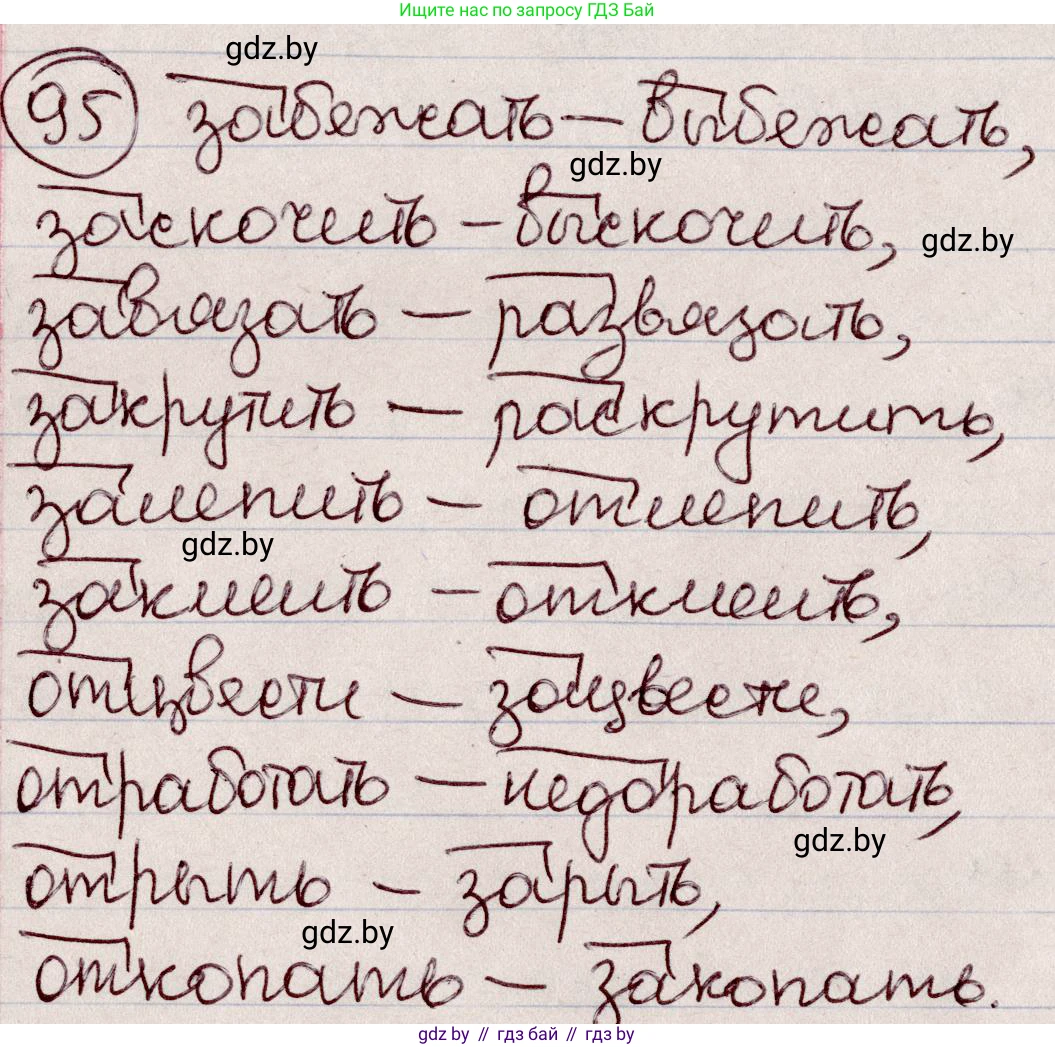 Ищите нас по запросу ГДЗ Бай
gdz.by
95 забежать — выбежать,
gdz.by
заскочить — выскочить,
gdz.by
завязать — развязать,
закрутить — раскрутить,
залепить — отлепить,
gdz.by
заклеить — отклеить,
отцвести — зацвести,
отработать — недоработать,
gdz.by
отрыть — зарыть,
gdz.by
откопать — закопать.
gdz by // гдз бай // gdz by